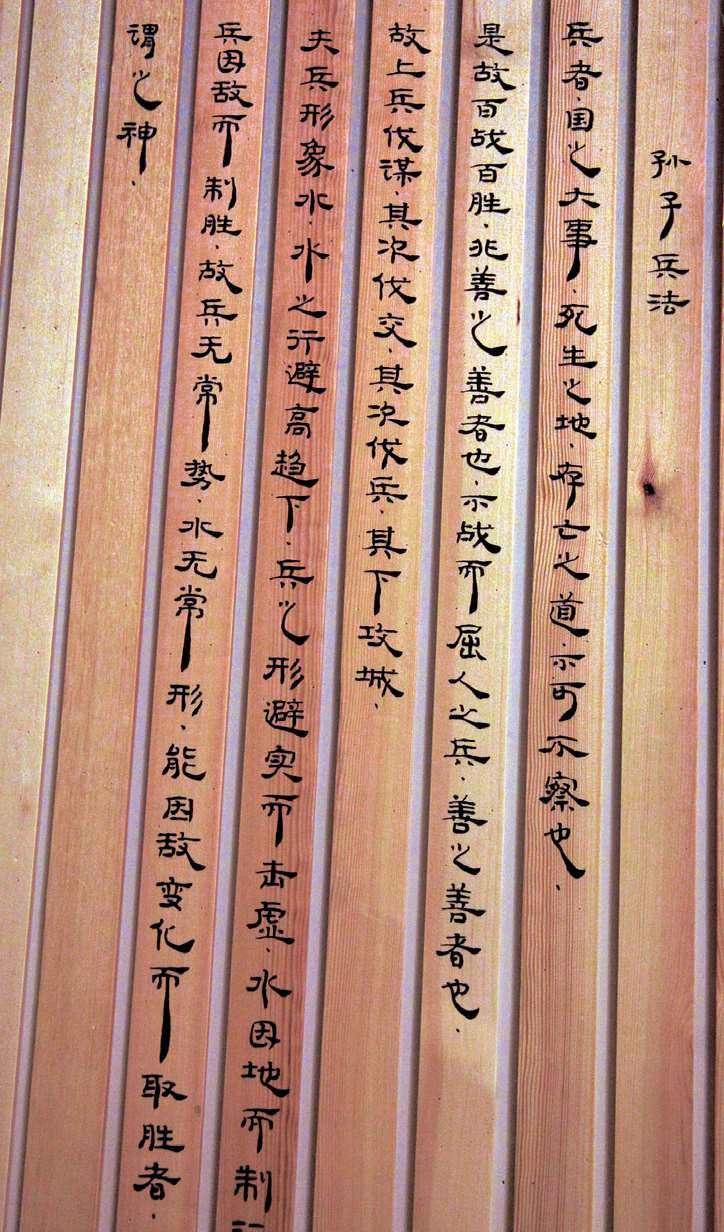 孙子兵法
兵者、国之大事、死生之地、存亡之道、不可不察也、
是故百战百胜、非善之善者也、不战而屈人之兵、善之善者也、
故上兵伐谋、其次伐交、其次伐兵、其下攻城、
夫兵形象水、水之行避高趋下、兵之形避实而击虚、水因地而制
兵因敌而制胜、故兵无常势、水无常形、能因敌变化而取胜者、
谓之神、